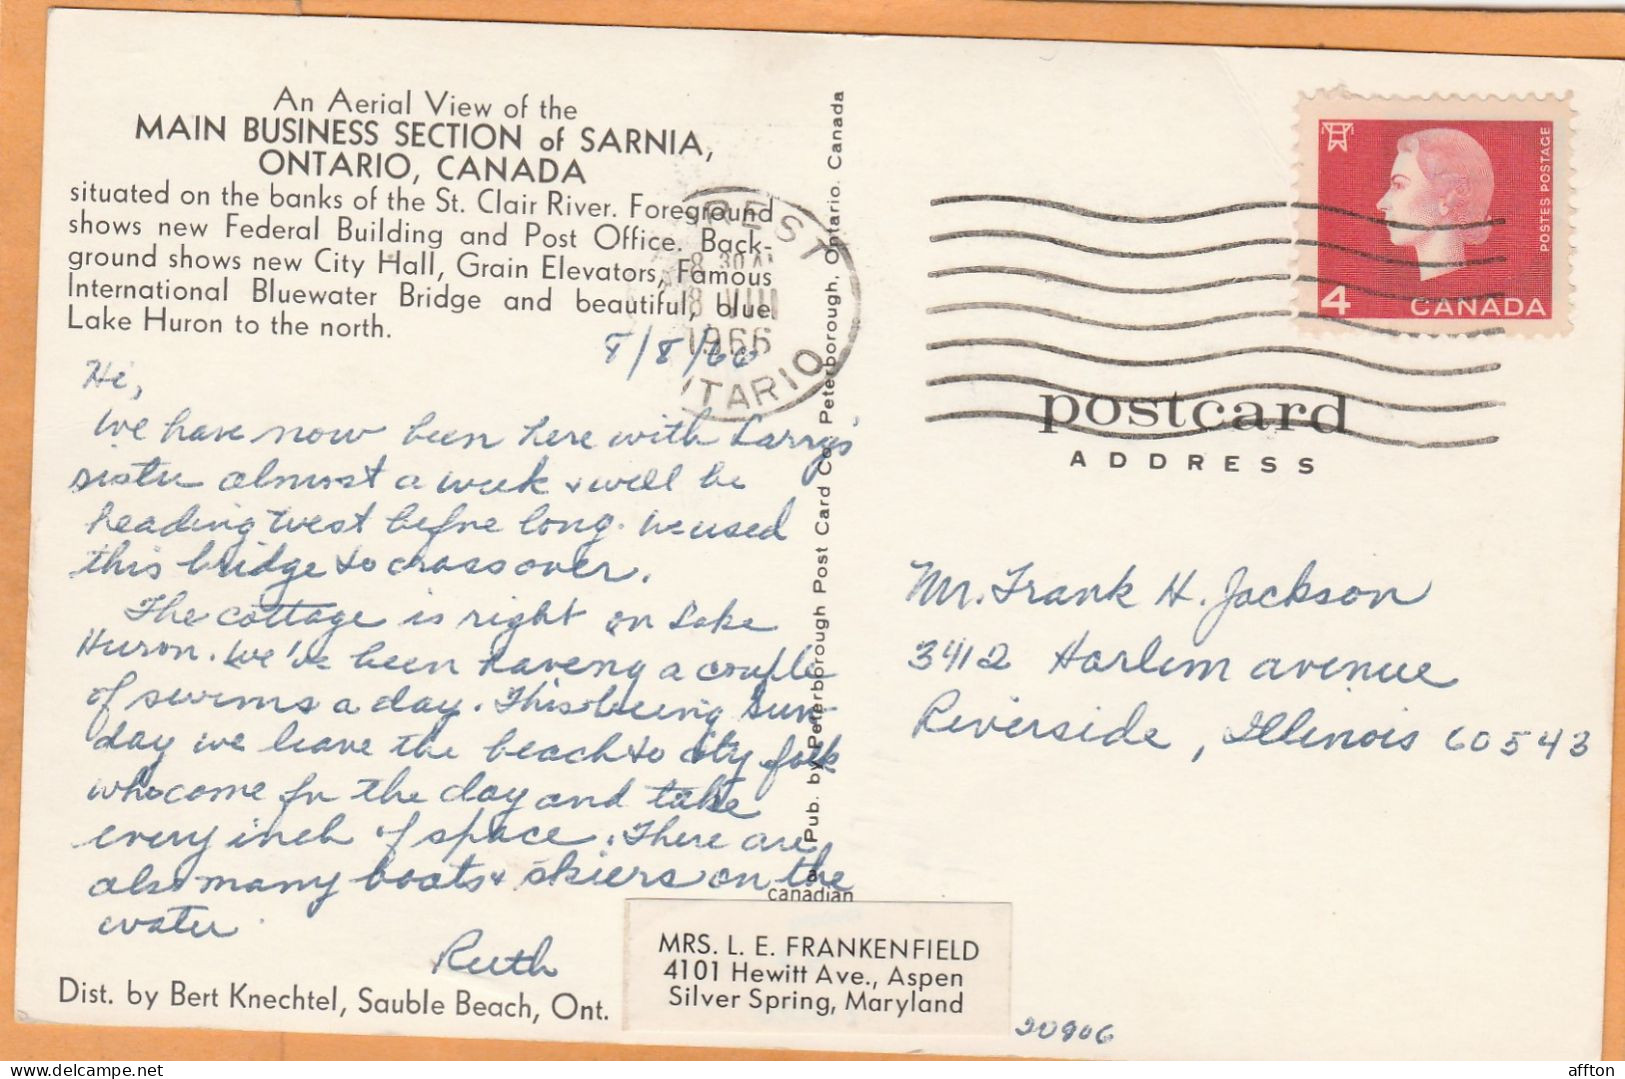 An Aerial View of the
MAIN BUSINESS SECTION of SARNIA,
ONTARIO, CANADA
situated on the banks of the St. Clair River. Foreground
shows new Federal Building and Post Office. Back-
ground shows new City Hall, Grain Elevators, Famous
International Bluewater Bridge and beautiful, blue
Lake Huron to the north.
8/8/66
Hi,
We have now been here with Larry's
sister almost a week & will be
heading West before long. We used
this bridge to cross over.
The cottage is right on Lake
Huron. We've been haveng a couple
of swims a day. This being Sun-
day we leave the beach to city folk
who come for the day and take
every inch of space. There are
also many boats & skiers on the
water.
Ruth
Dist. by Bert Knechtel, Sauble Beach, Ont.
REST
8 30 A
8 VIII
1966
NTARIO
Pub. by Peterborough Post Card Co., Peterborough, Ontario. Canada
canadian
MRS. L. E. FRANKENFIELD
4101 Hewitt Ave., Aspen
Silver Spring, Maryland
20906
4
CANADA
POSTES POSTAGE
postcard
ADDRESS
Mr. Frank H. Jackson
3412 Harlem avenue
Riverside, Illinois 60543
affton
delcampe.net